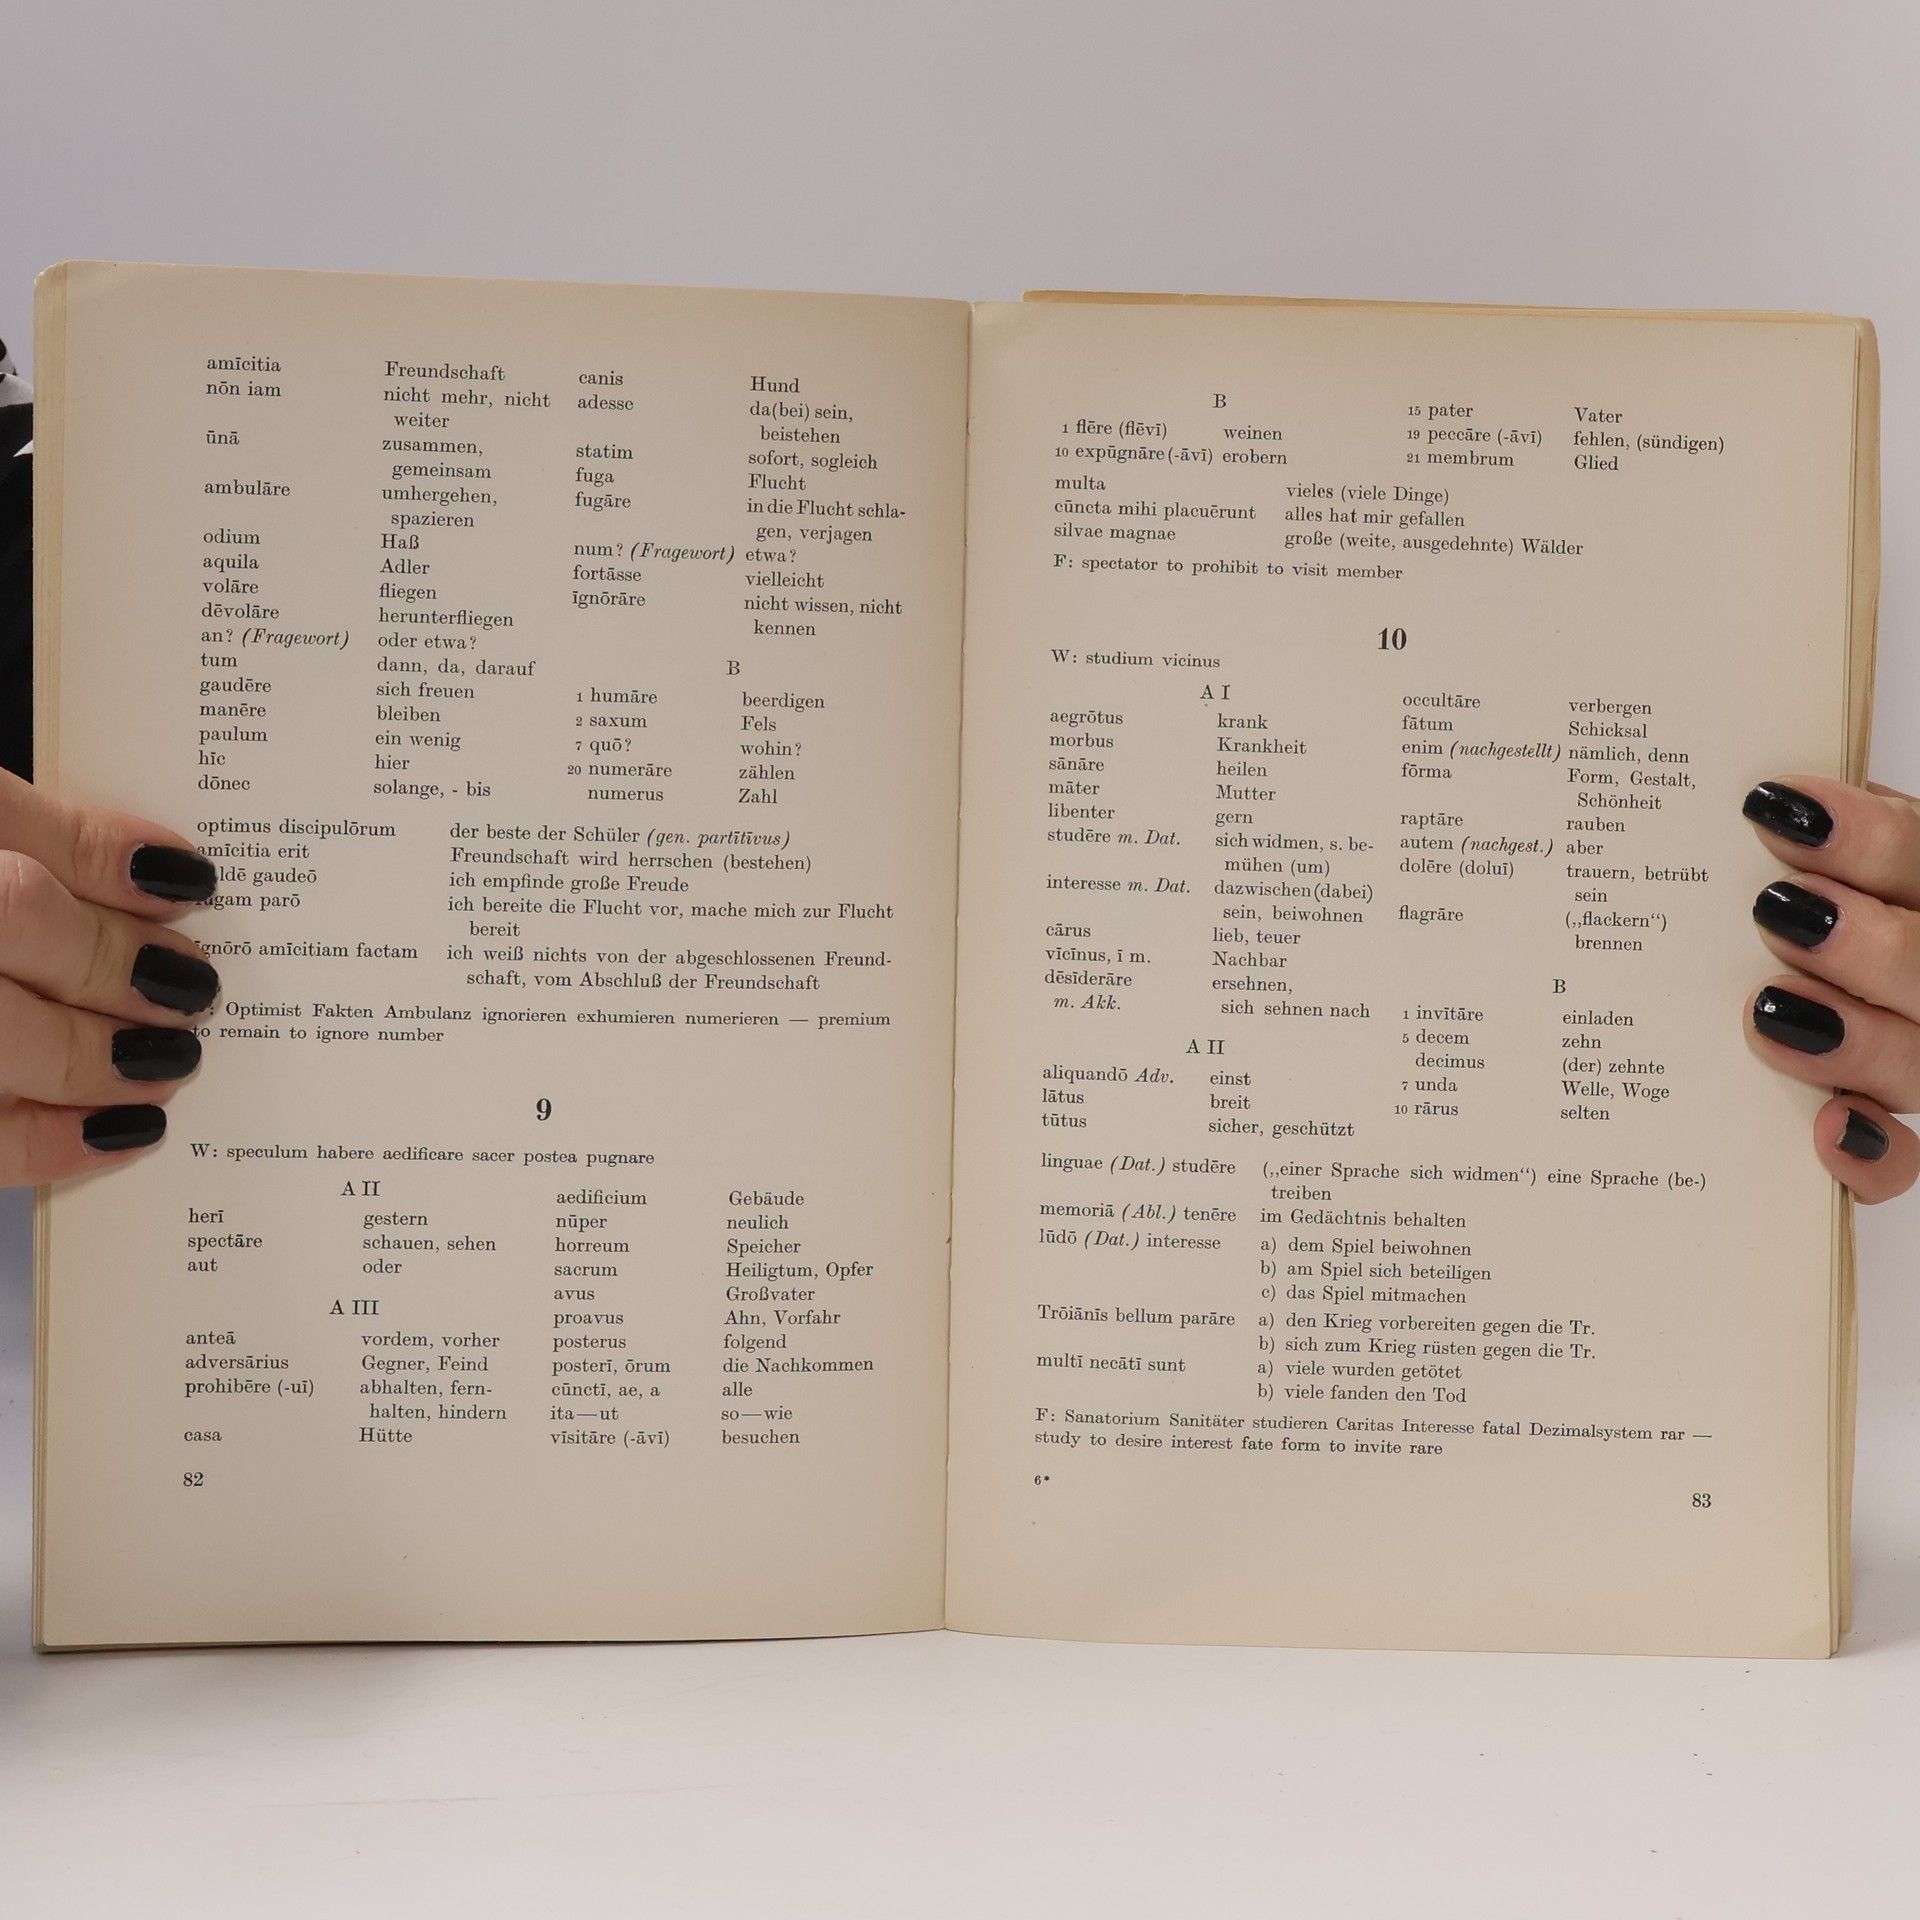 amīcitia Freundschaft
nōn iam nicht mehr, nicht
weiter
ūnā zusammen,
gemeinsam
ambulāre umhergehen,
spazieren
odium Haß
aquila Adler
volāre fliegen
dēvolāre herunterfliegen
an? (Fragewort) oder etwa?
tum dann, da, darauf
gaudēre sich freuen
manēre bleiben
paulum ein wenig
hīc hier
dōnec solange, - bis
canis Hund
adesse da(bei) sein,
beistehen
statim sofort, sogleich
fuga Flucht
fugāre in die Flucht schla-
gen, verjagen
num? (Fragewort) etwa?
fortāsse vielleicht
īgnōrāre nicht wissen, nicht
kennen
B
1 humāre beerdigen
2 saxum Fels
7 quō? wohin?
20 numerāre zählen
numerus Zahl
optimus discipulōrum der beste der Schüler (gen. partītīvus)
amīcitia erit Freundschaft wird herrschen (bestehen)
gaudeō ich empfinde große Freude
parō ich bereite die Flucht vor, mache mich zur Flucht
bereit
īgnōrō amīcitiam factam ich weiß nichts von der abgeschlossenen Freund-
schaft, vom Abschluß der Freundschaft
Optimist Fakten Ambulanz ignorieren exhumieren numerieren — premium
to remain to ignore number
9
W: speculum habere aedificare sacer postea pugnare
A II
herī gestern
spectāre schauen, sehen
aut oder
A III
anteā vordem, vorher
adversārius Gegner, Feind
prohibēre (-uī) abhalten, fern-
halten, hindern
casa Hütte
aedificium Gebäude
nūper neulich
horreum Speicher
sacrum Heiligtum, Opfer
avus Großvater
proavus Ahn, Vorfahr
posterus folgend
posterī, ōrum die Nachkommen
cūnctī, ae, a alle
ita—ut so—wie
vīsitāre (-āvī) besuchen
82
B
1 flēre (flēvī) weinen
10 expūgnāre (-āvī) erobern
15 pater Vater
19 peccāre (-āvī) fehlen, (sündigen)
21 membrum Glied
multa vieles (viele Dinge)
cūncta mihi placuērunt alles hat mir gefallen
silvae magnae große (weite, ausgedehnte) Wälder
F: spectator to prohibit to visit member
10
W: studium vicinus
A I
aegrōtus krank
morbus Krankheit
sānāre heilen
māter Mutter
libenter gern
studēre m. Dat. sich widmen, s. be-
mühen (um)
interesse m. Dat. dazwischen(dabei)
sein, beiwohnen
cārus lieb, teuer
vīcīnus, ī m. Nachbar
dēsīderāre ersehnen,
m. Akk. sich sehnen nach
A II
aliquandō Adv. einst
lātus breit
tūtus sicher, geschützt
occultāre verbergen
fātum Schicksal
enim (nachgestellt) nämlich, denn
fōrma Form, Gestalt,
Schönheit
raptāre rauben
autem (nachgest.) aber
dolēre (doluī) trauern, betrübt
sein
flagrāre („flackern“)
brennen
B
1 invītāre einladen
5 decem zehn
decimus (der) zehnte
7 unda Welle, Woge
10 rārus selten
linguae (Dat.) studēre („einer Sprache sich widmen“) eine Sprache (be-)
treiben
memoriā (Abl.) tenēre im Gedächtnis behalten
lūdō (Dat.) interesse a) dem Spiel beiwohnen
b) am Spiel sich beteiligen
c) das Spiel mitmachen
Trōiānīs bellum parāre a) den Krieg vorbereiten gegen die Tr.
b) sich zum Krieg rüsten gegen die Tr.
multī necātī sunt a) viele wurden getötet
b) viele fanden den Tod
F: Sanatorium Sanitäter studieren Caritas Interesse fatal Dezimalsystem rar —
study to desire interest fate form to invite rare
6*
83